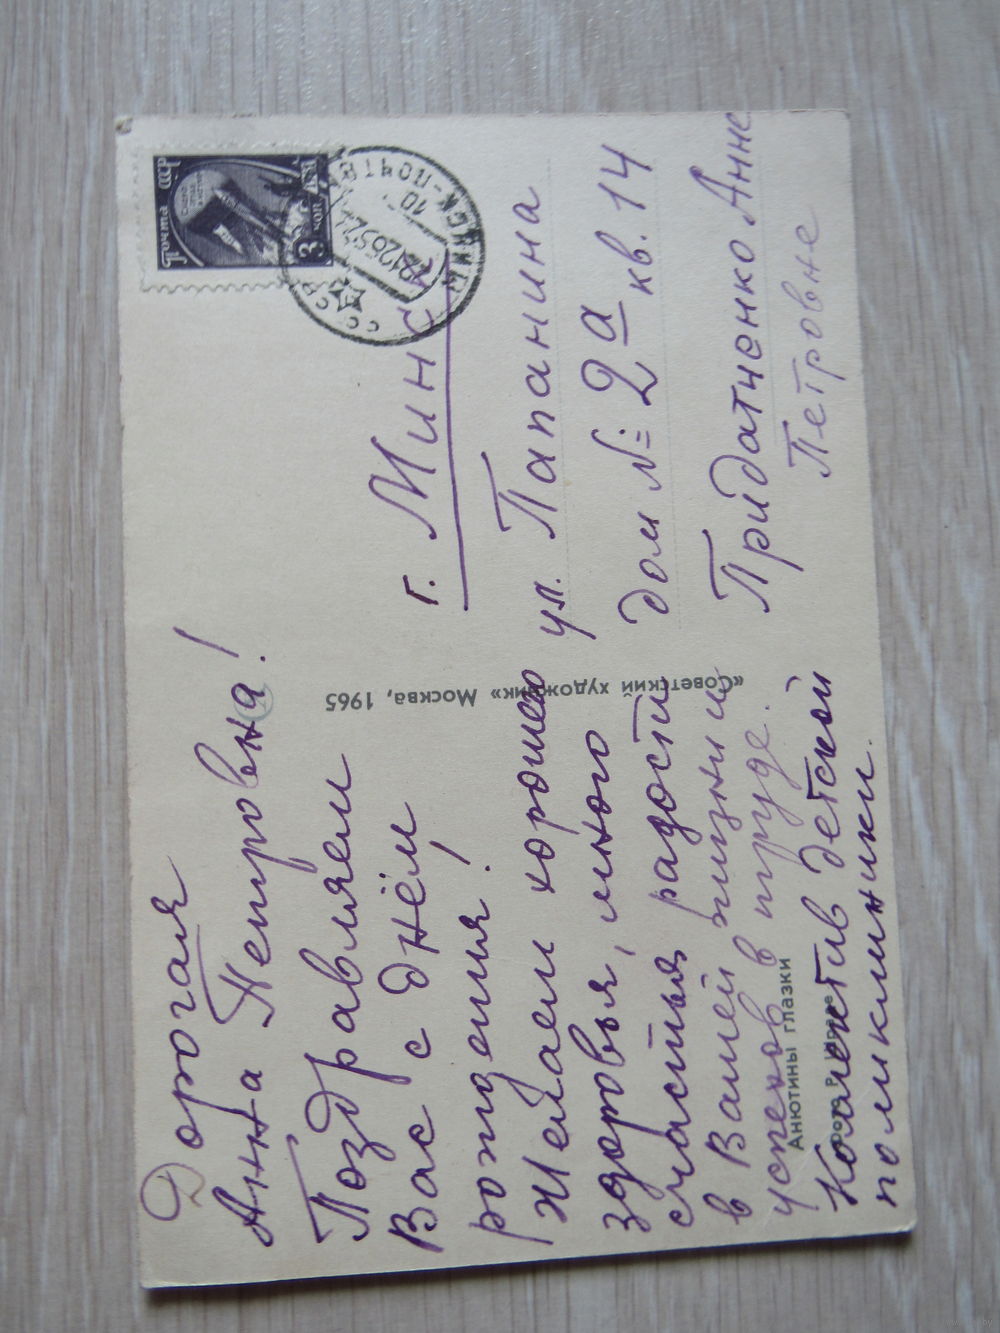 Дорогая
Анна Петровна!
Поздравляем
Вас с днём
рождения!
Желаем хорошего
здоровья, много
счастья, радости
в Вашей жизни и
успехов в труде.
Коллектив детской
поликлиники.
Анютины глазки
«Советский художник» Москва, 1965
Почта СССР
3 коп
СССР
МИНСК-ПОЧТА
г. Минск
ул. Папанина
дом № 2а кв. 14
Придатченко Анне
Петровне